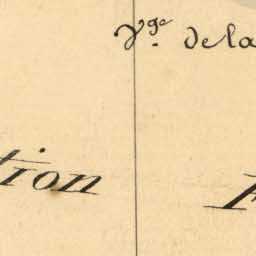 Vge. de la
tion